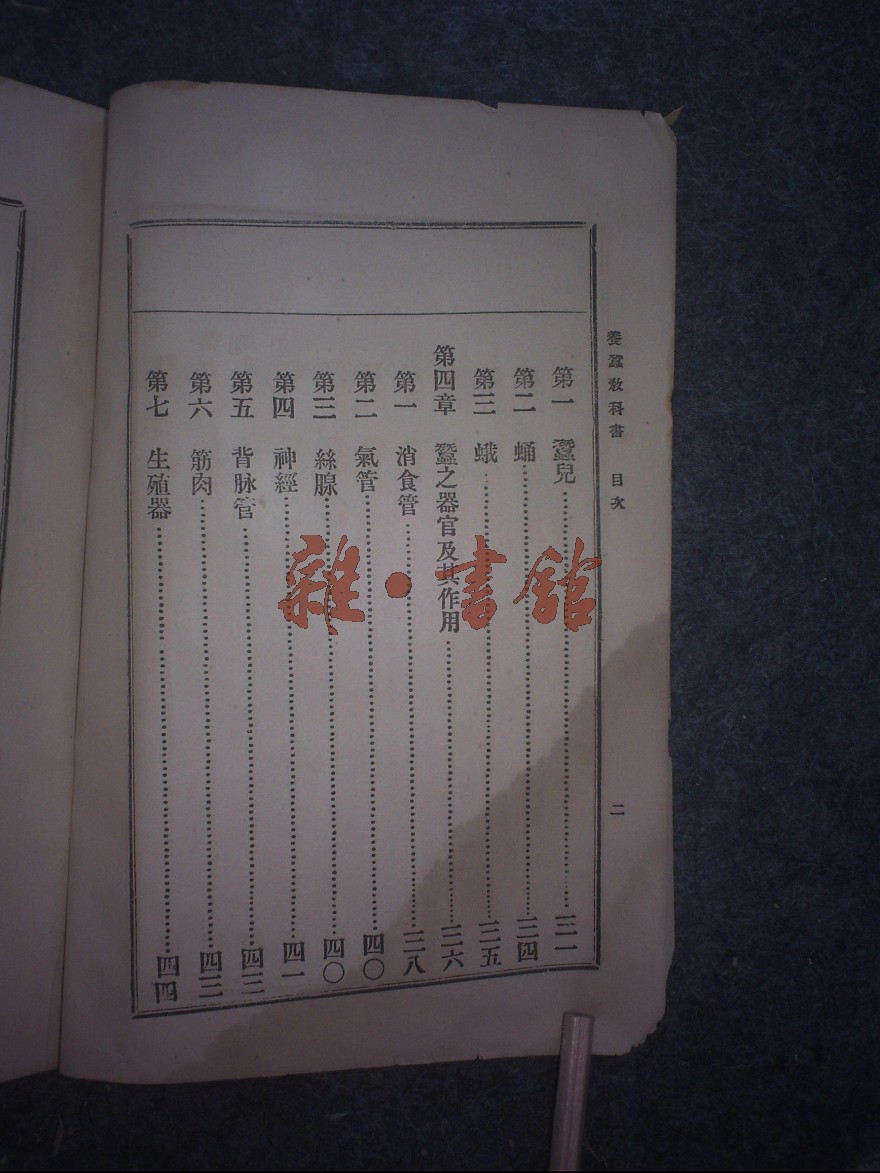 養蠶教科書 目次 二
第一 蠶兒……三一
第二 蛹……三四
第三 蛾……三五
第四章 蠶之器官及其作用……三六
第一 消食管……三八
第二 氣管……四〇
第三 絲腺……四〇
第四 神經……四一
第五 背脉管……四三
第六 筋肉……四三
第七 生殖器……四四
雜·書館